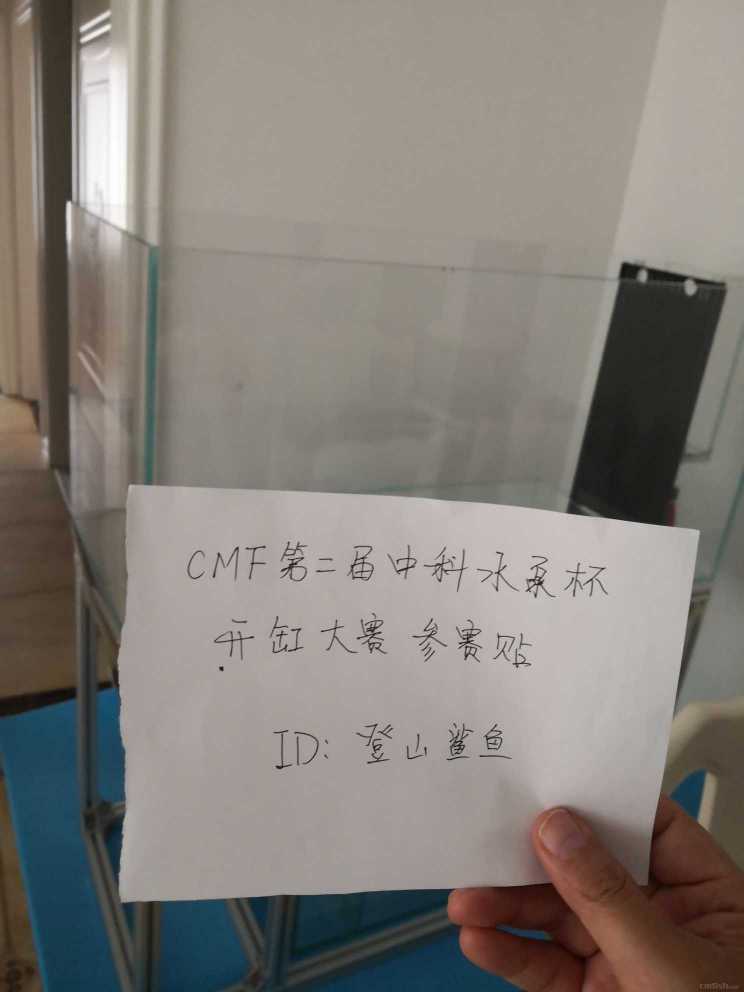 CMF第二届中科水泵杯
开缸大赛 参赛贴
ID: 登山鲨鱼
cmfish.com